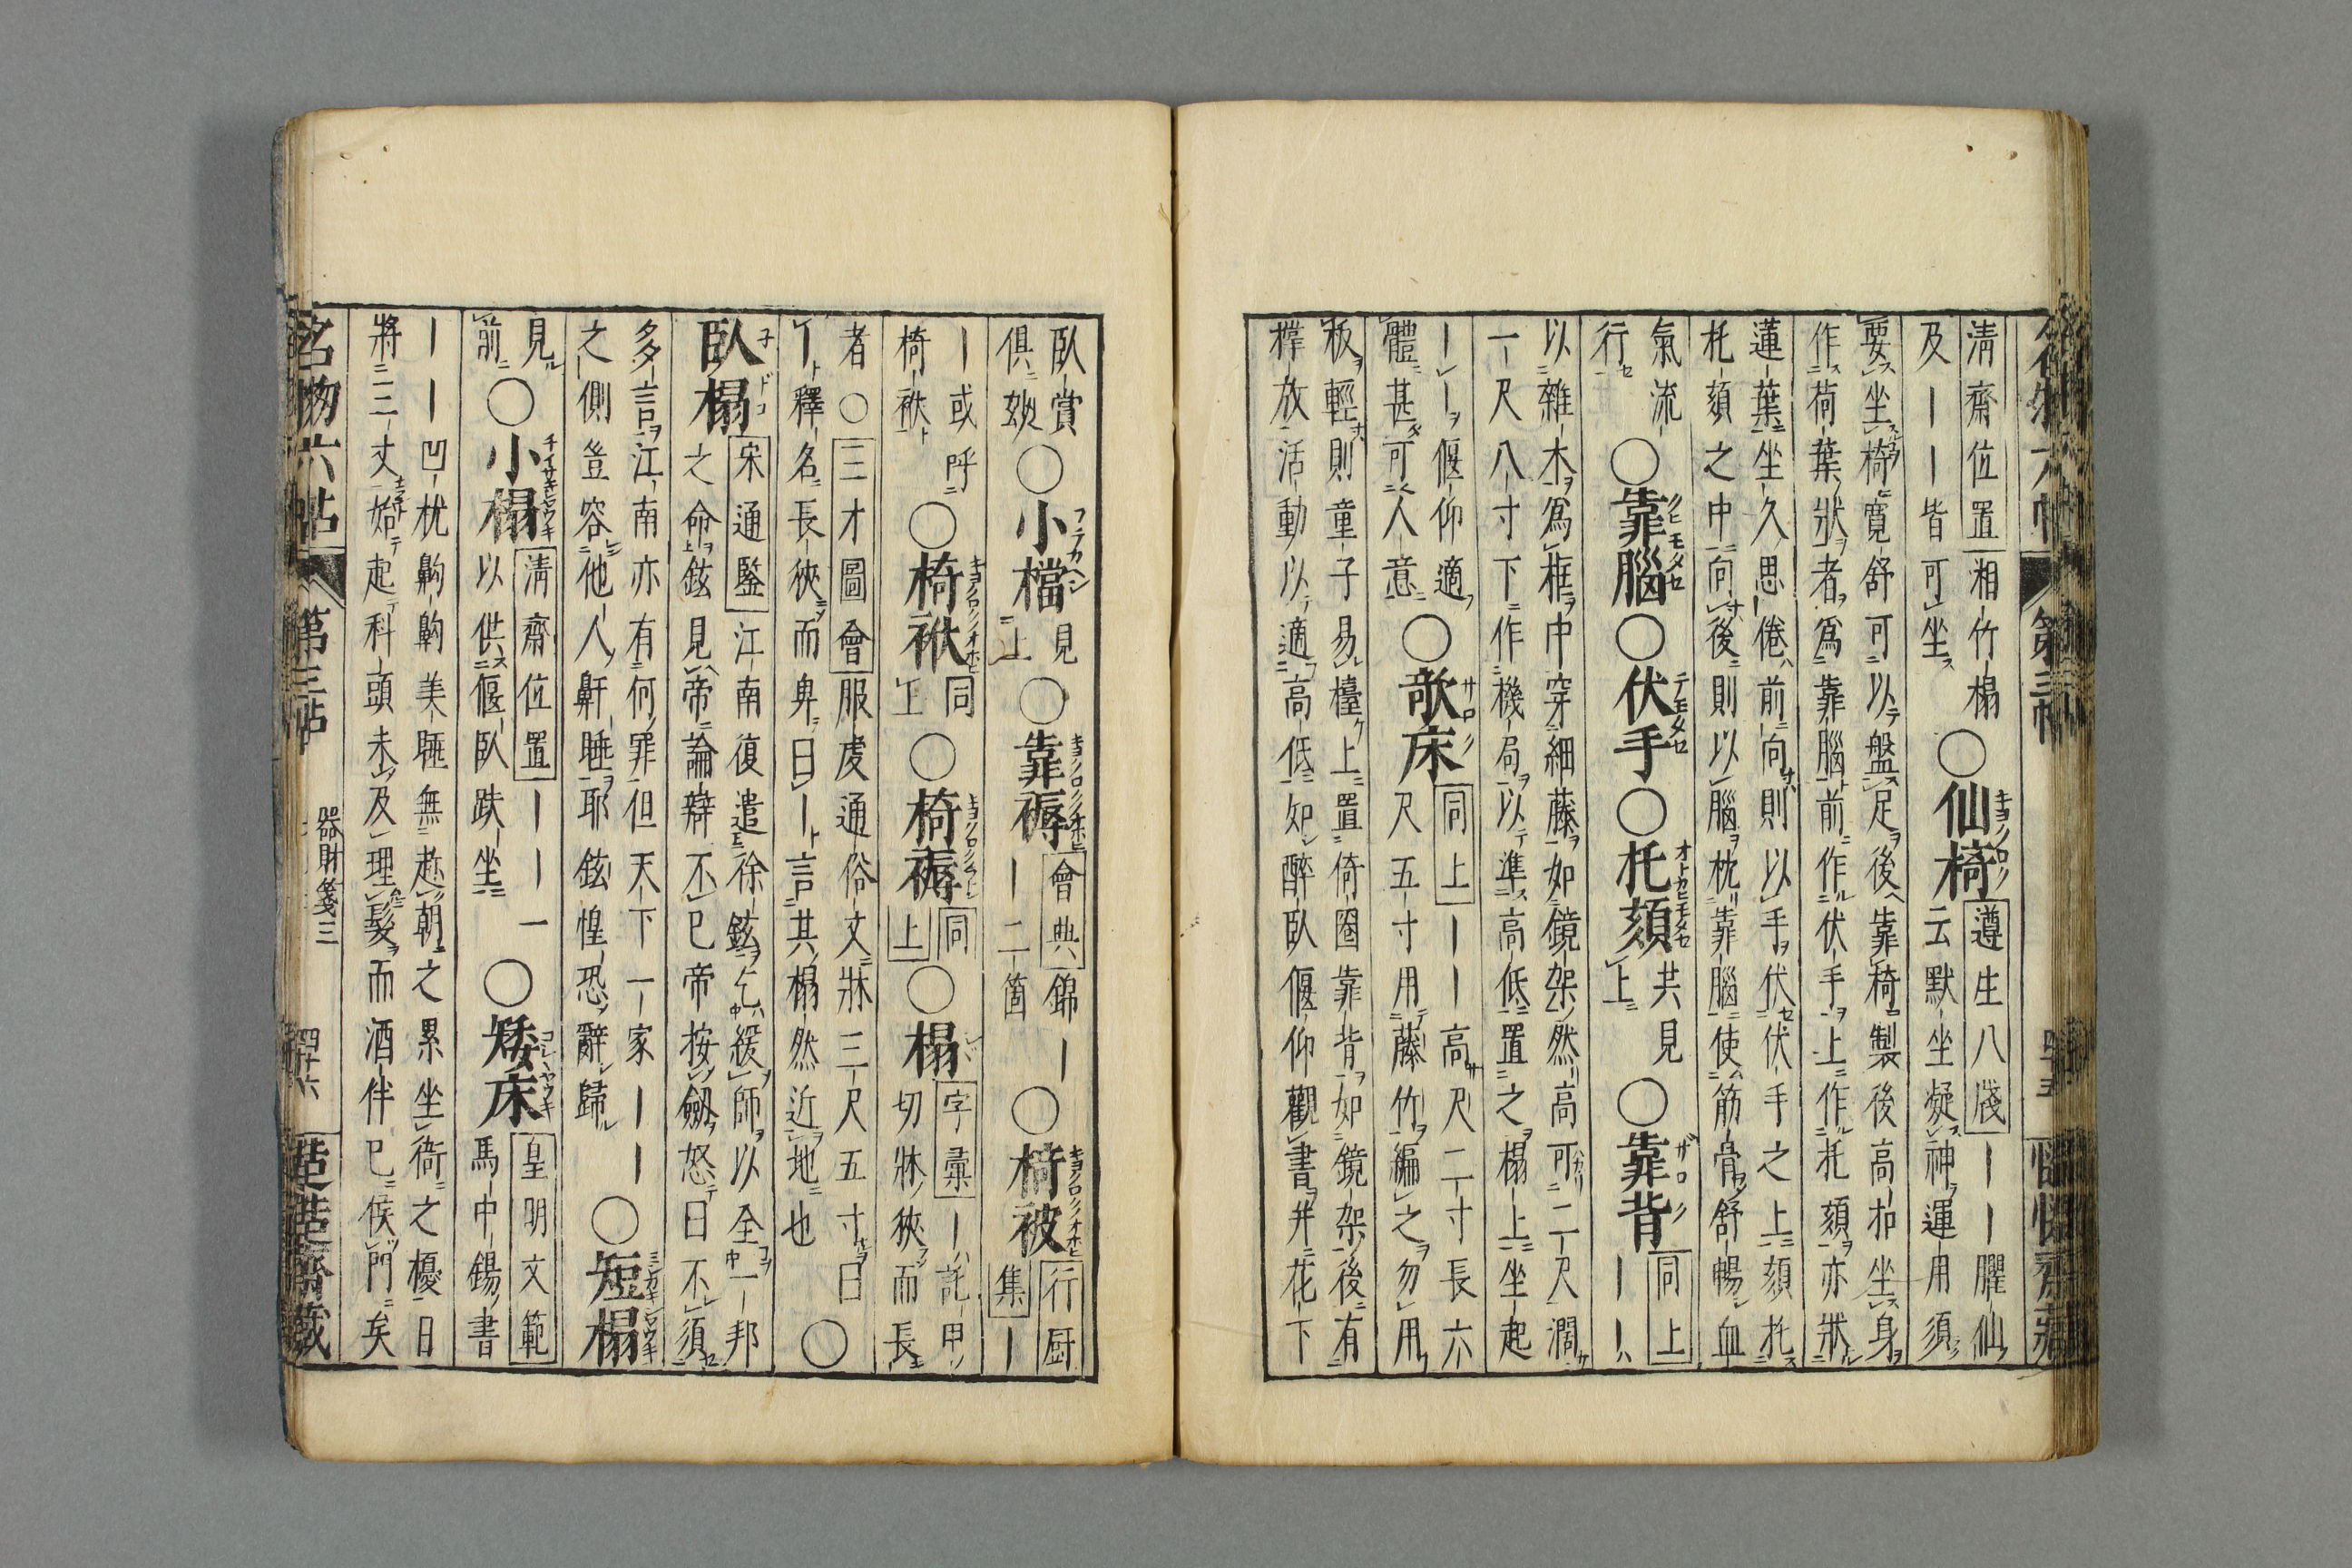 清齋位置 湘竹榻
及｜｜皆可坐
○仙椅
遵生八牋｜｜臞仙
云默坐凝神運用須
要坐椅寛舒可以盤足後靠椅製後高扣坐身
作荷葉狀者爲靠腦前作伏手上作托頦亦狀
蓮葉坐久思倦前向則以手伏伏手之上頦托
托頦之中向後則以腦枕靠腦使筋骨舒暢血
氣流
行
○靠腦○伏手○托頦
共見
上
○靠背
同上
｜｜
以雜木爲框中穿細藤如鏡架然高可二尺濶
一尺八寸下作機局以準高低置之榻上坐起
｜｜偃仰適
體甚可人意
○欹床
同上｜｜高尺二寸長六
尺五寸用藤竹編之勿用
板輕則童子易擡上置倚圈靠背如鏡架後有
撑放活動以適高低如醉臥偃仰觀書并花下
臥賞
俱妙
○小檔
見
上
○靠褥
會典錦｜
｜二箇
○椅被
行厨
集｜
｜或呼
椅袱
○椅袱
同
上
○椅褥
同
上
○榻
字彙｜託甲
切牀狹而長
者○三才圖會服虔通俗文牀三尺五寸曰
｜釋名長狹而卑曰｜言其榻然近地也
○
臥榻
宋通鑒江南復遣徐鉉乞緩師以全一邦
之命鉉見帝論辯不已帝按劔怒曰不須
多言江南亦有何罪但天下一家｜｜
之側豈容他人鼾睡耶鉉惶恐辭歸
○短榻
見
前
○小榻
清齋位置｜｜一
以供偃臥趺坐
○矮床
皇明文範
馬中錫書
｜｜凹枕齁齁美睡無趂朝之累坐衙之擾日
將二三丈始起科頭未及理髮而酒伴已候門矣
名物六帖 第三帖 器財箋三 四十六